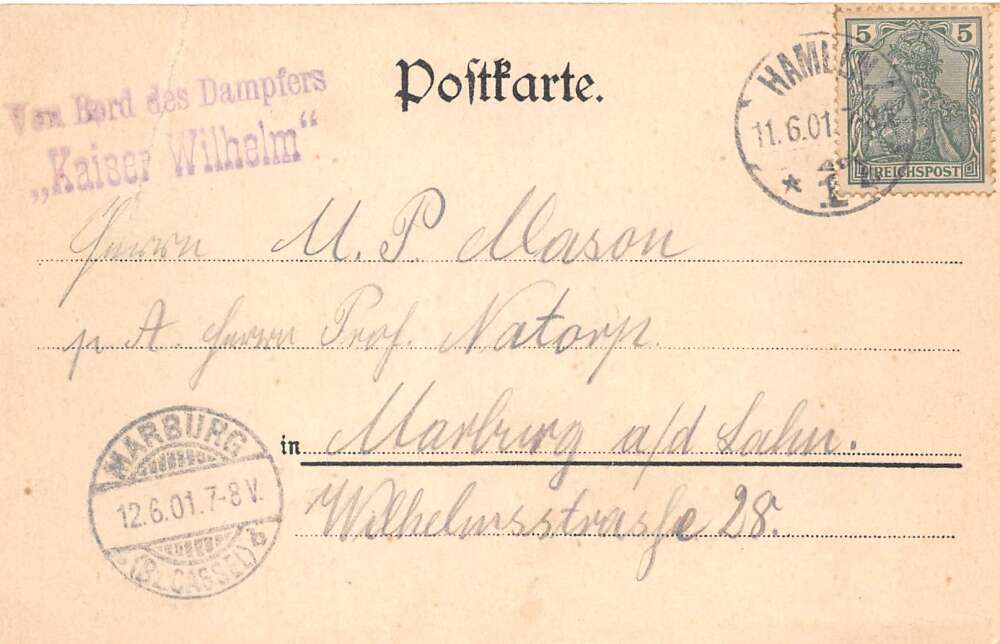 Postkarte.
Von Bord des Dampfers
„Kaiser Wilhelm“
HAMELN
11.6.01. 7-8
* 1
5 5
REICHSPOST
Herrn M. P. Mason
p A. Herrn Prof. Natorp.
in Marburg a/d Lahn.
Wilhelmsstraße 28.
MARBURG
12.6.01. 7-8 V.
(Bz. CASSEL) b